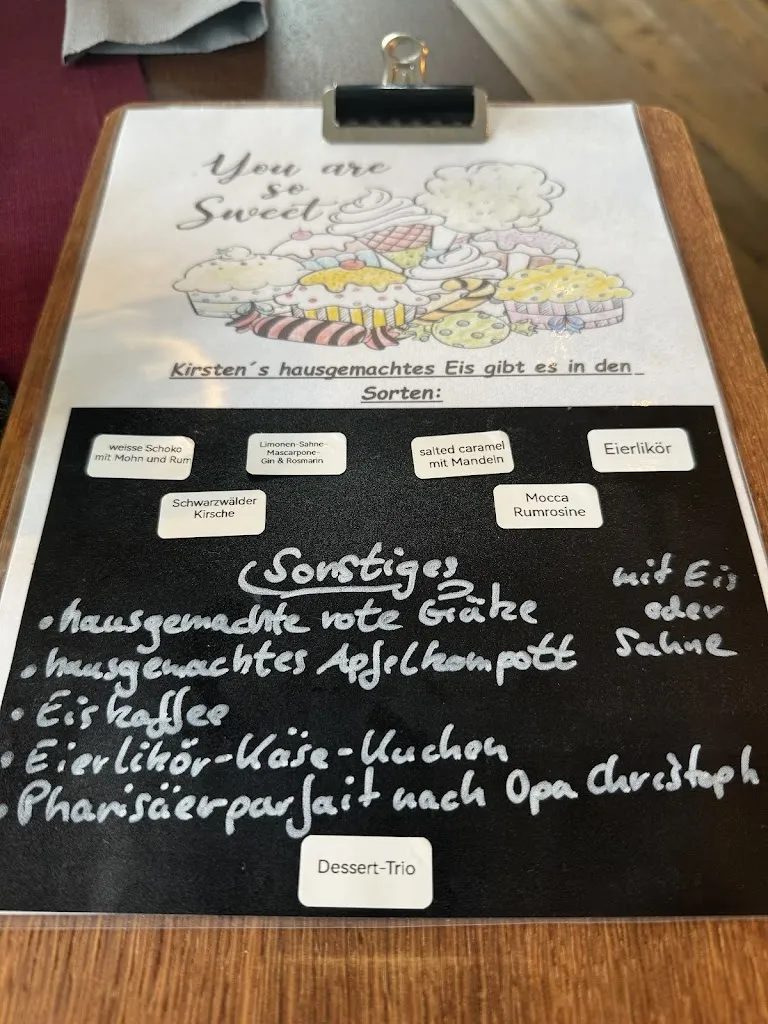 You are
so
Sweet
Kirsten´s hausgemachtes Eis gibt es in den
Sorten:
weisse Schoko
mit Mohn und Rum
Limonen-Sahne-
Mascarpone-
Gin & Rosmarin
salted caramel
mit Mandeln
Eierlikör
Schwarzwälder
Kirsche
Mocca
Rumrosine
Sonstiges
• hausgemachte rote Grütze
• hausgemachtes Apfelkompott
mit Eis
oder
Sahne
• Eiskaffee
• Eierlikör-Käse-Kuchen
• Pharisäerparfait nach Opa Christoph
Dessert-Trio